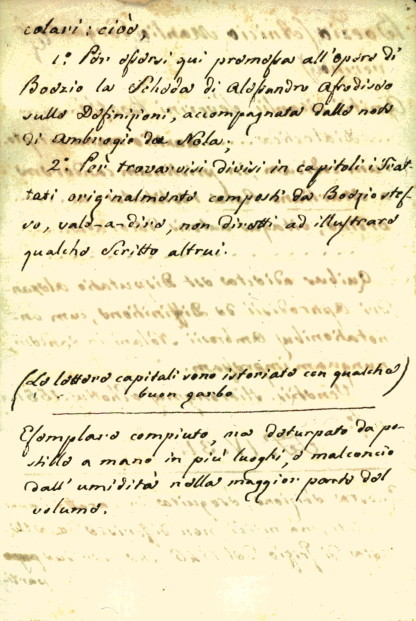 colari: cioè,
1.° Per essersi qui premessa all'opera di
Boezio la Scheda di Alessandro Afrodiseo
sulle Definizioni, accompagnata dalle note
di Ambrogio da Nola;
2.° Per trovarvisi divisi in capitoli i Trat-
tati originalmente composti da Boezio stes-
so, vale-a-dire, non diretti ad illustrare
qualche scritto altrui.
(Le lettere capitali sono istoriate con qualche)
buon garbo
Esemplare compiuto, ma deturpato da po-
stille a mano in più luoghi, e malconcio
dall'umidità nella maggior parte del
volume.